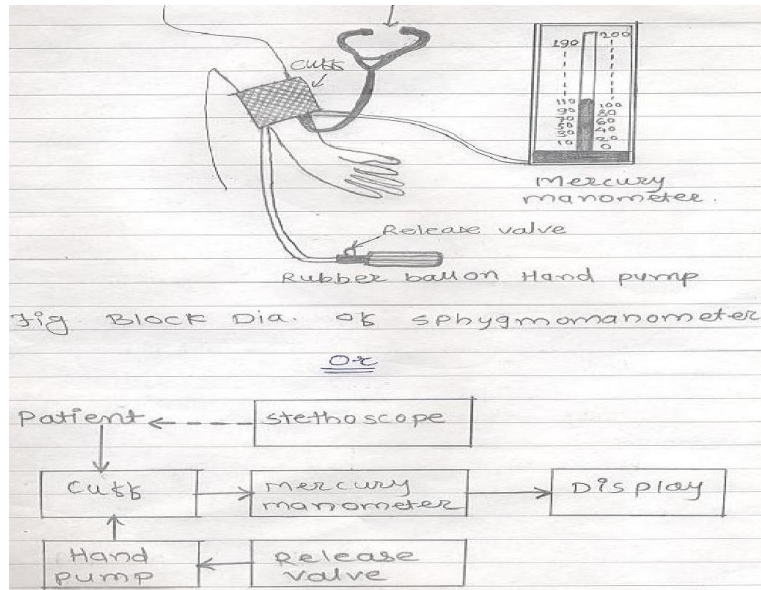 Cuff
190
200
110
100
90
80
70
60
50
40
30
20
10
0
Mercury
manometer.
Release valve
Rubber ballon Hand pump
Fig Block Dia. of Sphygmomanometer
Or
Patient
Stethoscope
Cuff
Mercury
manometer
Display
Hand
pump
Release
valve